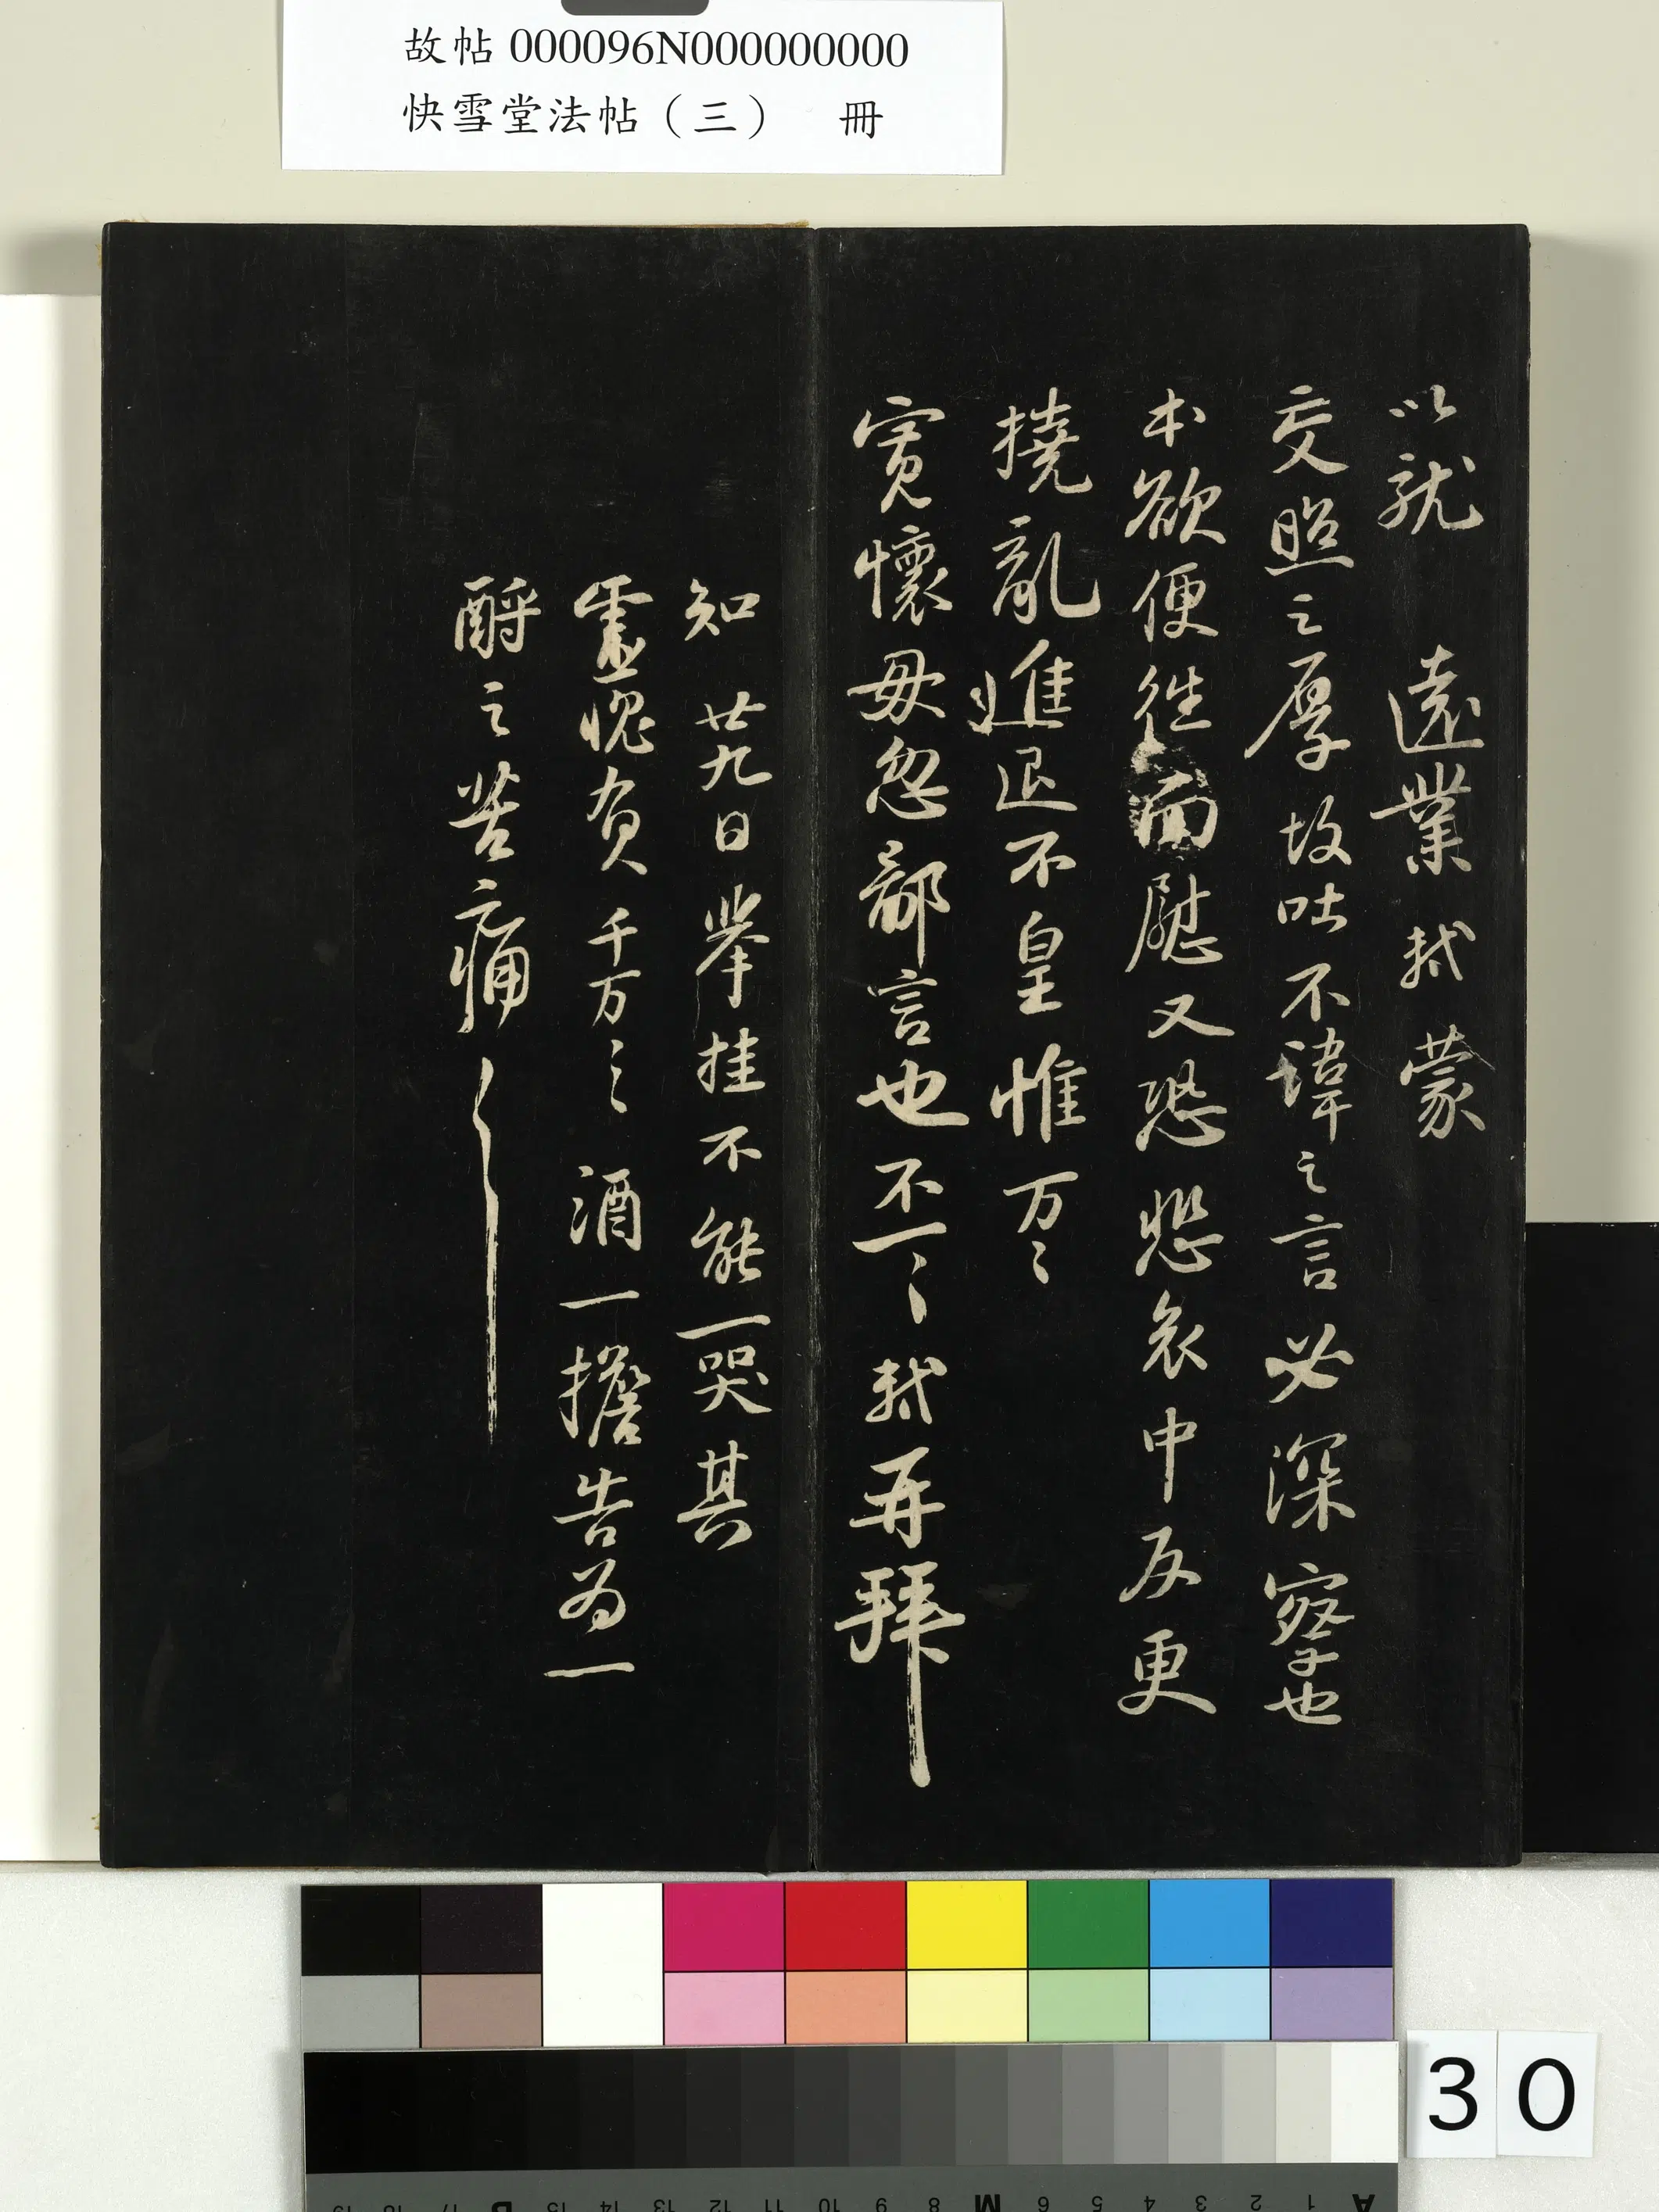 故帖 000096N000000000
快雪堂法帖（三） 冊
以就 遠業軾蒙
交照之厚故吐不諱之言必深察也
本欲便往面慰又恐悲哀中反更
撓亂進退不皇惟万〻
寬懷毋忽鄙言也不一〻軾再拜
知廿九日舉挂不能一哭其
靈愧負千万〻〻酒一擔告為一
酹之苦痛〻
30